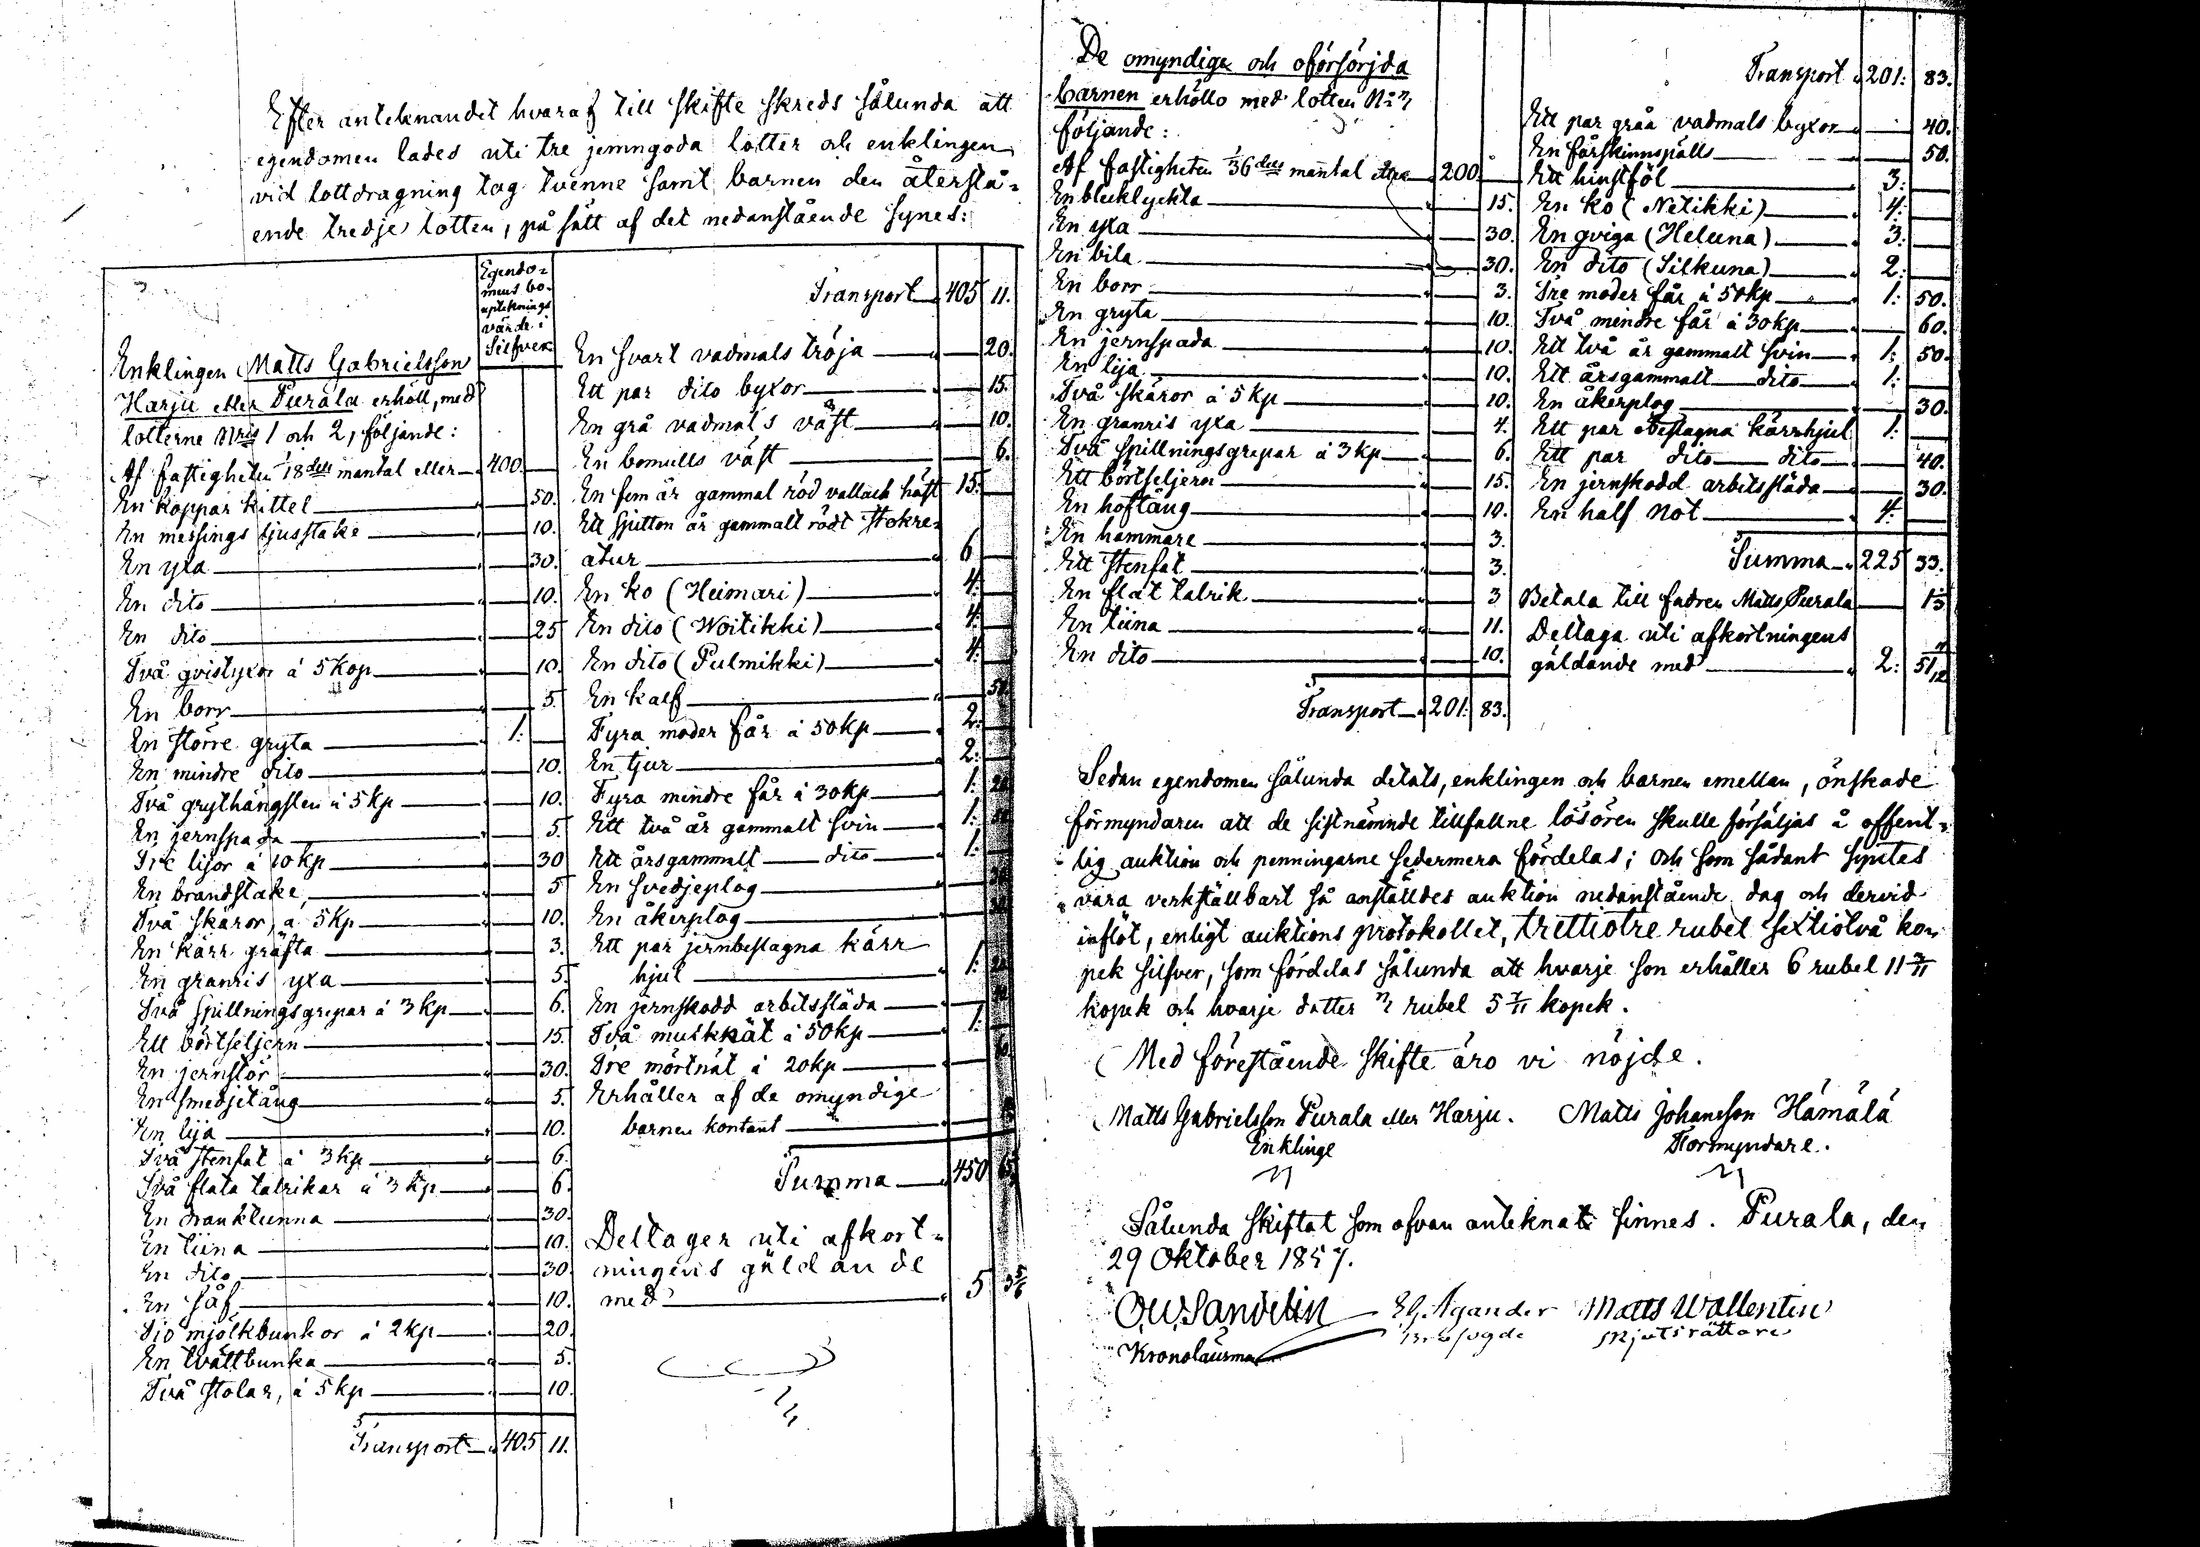 Efter antecknandet hvaraf till skifte skreds sålunda att
egendomen lades uti tre jemngoda lotter och enklingen
vid lottdragning tog tvenne samt barnen den återstå-
ende tredje lotten, på sätt af det nedanstående synes:
Egendo-
mens bo-
uptecknings
värde i
Silfver
Enklingen Matts Gabrielsson
Harju eller Purala erhöll, med
lotterne Nris 1 och 2, följande:
Af fastigheten 1/18dels mantal eller 400.
En koppar kittel 50.
En messings ljusstake 10.
En yxa 30.
En dito 10.
En dito 25
Två qvistyxor á 5 kop 10.
En borr 5.
En större gryta 1:
En mindre dito 10.
Två grythängslen á 5 kp 10.
En jernspada 5.
Tre lijor á 10 kp 30
En brandstake 5
Två skäror, á 5 kp 10.
En kärr gräfta 3.
En granris yxa 5.
Två spillningsgrepar á 3 kp 6.
Ett börtseljern 15.
En jernstör 30.
En smedjetång 5.
En lija 10.
Två stenfat á 3 kp 6.
Två flata talrikar á 3 kp 6.
En dranktunna 30.
En tiina 10.
En dito 30.
En såf 10.
Tio mjölkbunkor á 2 kp 20.
En tvättbunka 5.
Två stolar, á 5 kp 10.
Transport 405 11.
Transport 405 11.
En svart vadmals tröja 20.
Ett par dito byxor 15.
En grå vadmals väst 10.
En bomulls väst 6.
En fem år gammal röd vallack häst 15.
Ett sjutton år gammalt rödt stokre-
atur 6
En ko (Heimari) 4.
En dito (Woitikki) 4.
En dito (Pulmikki) 4.
En kalf 50.
Fyra moder får á 50 kp 2.
En tjur 2.
Fyra mindre får á 30 kp 1. 20
Ett två år gammalt svin 1. 50
Ett årsgammalt dito 1.
En svedjeplog
En åkerplog
Ett par jernbeslagna kärr
hjul 1.
En jernskodd arbitssläda
Två muikkät á 50 kp 1.
Tre mörtnät á 20 kp 60
Erhåller af de omyndige
barnen kontant
Summa 450
Deltager uti afkort-
ningens gäldande
med 5
De omyndiga och oförsörjda
barnen erhöllo med lotten No 3
följande:
Af fastigheten 1/36dels mantal 200.
En blecklyckta 15.
En yxa 30.
En bila 30.
En borr 3.
En gryta 10.
En jernspada 10.
En lija 10.
Två skäror á 5 kp 10.
En granris yxa 4.
Två spillningsgrepar á 3 kp 6.
Ett börtseljern 15.
En hoftång 10.
En hammare 3.
Ett stenfat 3.
En flat talrik 3
En tiina 11.
En dito 10.
Transport 201: 83.
Transport 201: 83.
Ett par gråa vadmals byxor 40.
En fårskinnspälls 50.
Ett hinstföl 3:
En ko (Netikki) 4:
En qviga (Heluna) 3:
En dito (Silkuna) 2:
Tre moder får á 50 kp 1: 50.
Två mindre får á 30 kp 60.
Ett två år gammalt svin 1: 50.
Ett årsgammalt dito 1:
En åkerplog 30.
Ett par obeslagna kärrhjul 1:
Ett par dito dito 40.
En jernskodd arbitssläda 30.
En half not 4:
Summa 225 33.
Betala till fadren Matts Purala
Deltaga uti afkortningens
gäldande med 2:
Sedan egendomen sålunda delats, enklingen och barnen emellan, önskade
förmyndaren att de sistnämnde tillfallne lösören skulle försäljas å offent-
lig auktion och penningarne sedermera fördelas; och som sådant syntes
vara verkställbart så anställdes auktion nedanstående dag och dervid
inflöt, enligt auktions protokollet, trettiotre rubel sextiotvå ko-
pek silfver, som fördelas sålunda att hvarje son erhåller 6 rubel 11 3/11
kopek och hvarje dotter 3 rubel 5 7/11 kopek.
Med förestående skifte äro vi nöjde.
Matts Gabrielsson Purala eller Harju. Matts Johansson Hämälä
Enklinge Förmyndare.
Sålunda skiftat som ofvan antecknat finnes. Purala, den
29 Oktober 1857.
O.W. Sandelin Agander Matts Wallentin
Kronolänsman